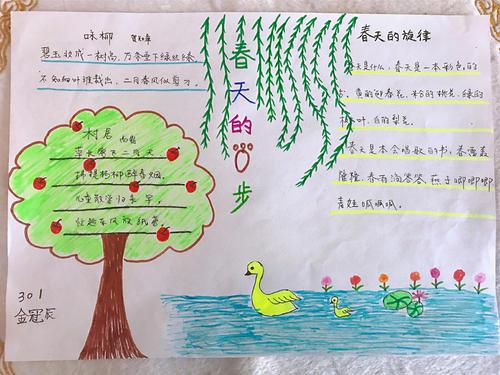 咏柳 贺知章
碧玉妆成一树高,万条垂下绿丝绦,
不知细叶谁裁出,二月春风似剪刀。
春天的步
村居
草长莺飞二月天
拂堤杨柳醉春烟。
儿童散学归来早,
忙趁东风放纸鸢。
301
春天的旋律
春天是什么,春天是一本彩色的
黄的迎春花、粉的桃花、绿的
叶、白的梨花。
春天是本会唱歌的书,春雷轰
隆隆、春雨滴答答、燕子唧唧唧
青蛙呱呱呱。